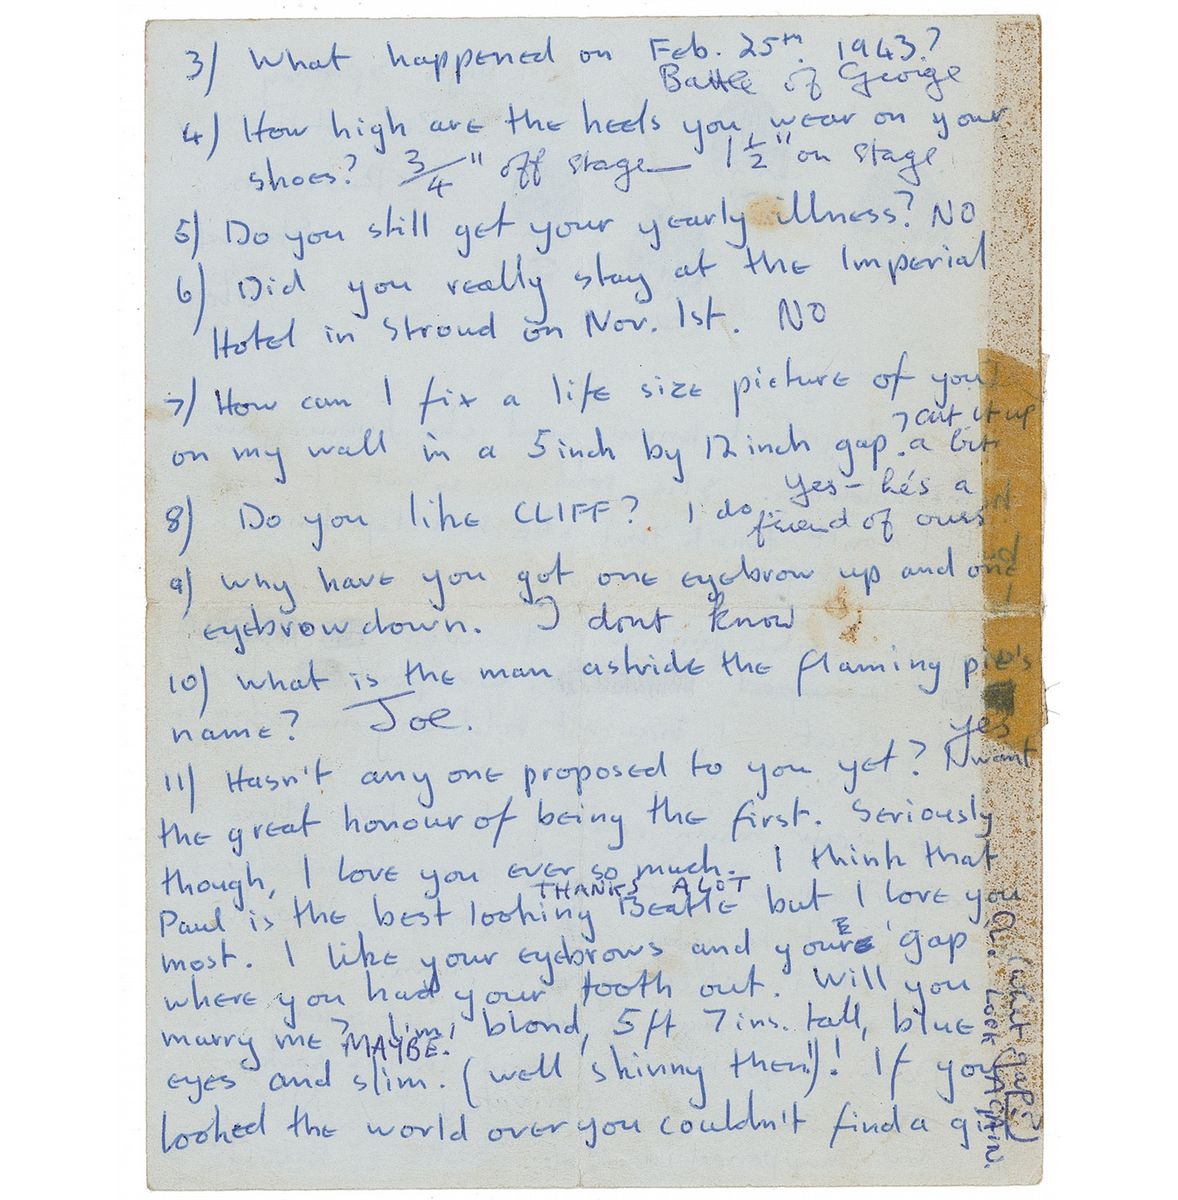 3) What happened on Feb. 25th. 1943?
Battle of George
4) How high are the heels you wear on your
shoes? 3/4" off stage — 1 1/2" on stage
5) Do you still get your yearly illness? NO
6) Did you really stay at the Imperial
Hotel in Stroud on Nov. 1st. NO
7) How can I fix a life size picture of you
on my wall in a 5 inch by 12 inch gap?
cut it up
a bit
8) Do you like CLIFF? I do
yes – he's a
friend of ours
9) Why have you got one eyebrow up and one
eyebrow down. I dont know
10) What is the man astride the flaming pie's
name? Joe.
yes
11) Hasn't any one proposed to you yet? I want
the great honour of being the first. Seriously
though, I love you ever so much. I think that
THANKS A LOT
Paul is the best looking Beatle but I love you
most. I like your eyebrows and your gap
where you had your tooth out. Will you
marry me? I'm blond, 5ft 7 ins. tall, blue
MAYBE!
eyes and slim. (well skinny then!)! If you
looked the world over you couldn't find a
(what gap?)
LOOK AGAIN.